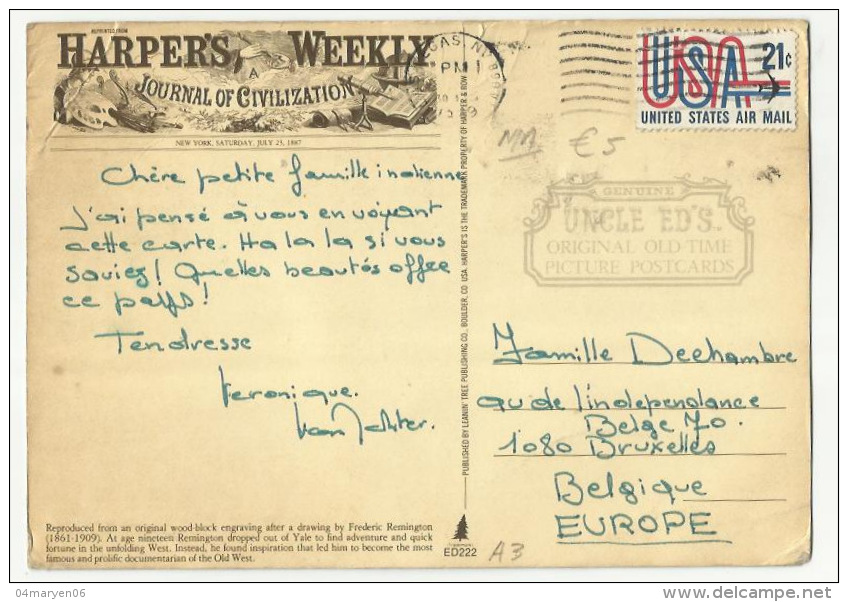 REPRINTED FROM
HARPER'S WEEKLY.
A
JOURNAL OF CIVILIZATION
NEW YORK, SATURDAY, JULY 23, 1887
PM
USA 21c
UNITED STATES AIR MAIL
€5
Chère petite famille indienne
J'ai pensé à vous en voyant
cette carte. Ha la la si vous
saviez! Quelles beautés offre
ce pays!
Tendresse
Veronique.
GENUINE
UNCLE ED'S
ORIGINAL OLD TIME
PICTURE POSTCARDS
PUBLISHED BY LEANIN' TREE PUBLISHING CO., BOULDER, CO USA. HARPER'S IS THE TRADEMARK PROPERTY OF HARPER & ROW
Famille Dechambre
Av de l'independance
Belge 70.
1080 Bruxelles
Belgique
EUROPE
Reproduced from an original wood-block engraving after a drawing by Frederic Remington
(1861-1909). At age nineteen Remington dropped out of Yale to find adventure and quick
fortune in the unfolding West. Instead, he found inspiration that led him to become the most
famous and prolific documentarian of the Old West.
ED222
A3
04maryen06
delcampe.net